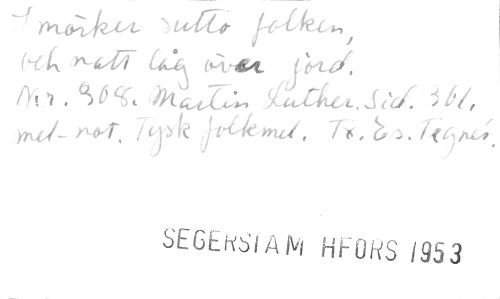 I mörker sutto folken,
och natt låg över jord.
N:r. 308. Martin Luther. Sid. 361.
mel-not. Tysk folkmel. Tx. Es. Tegnér.
SEGERSTAM HFORS 1953